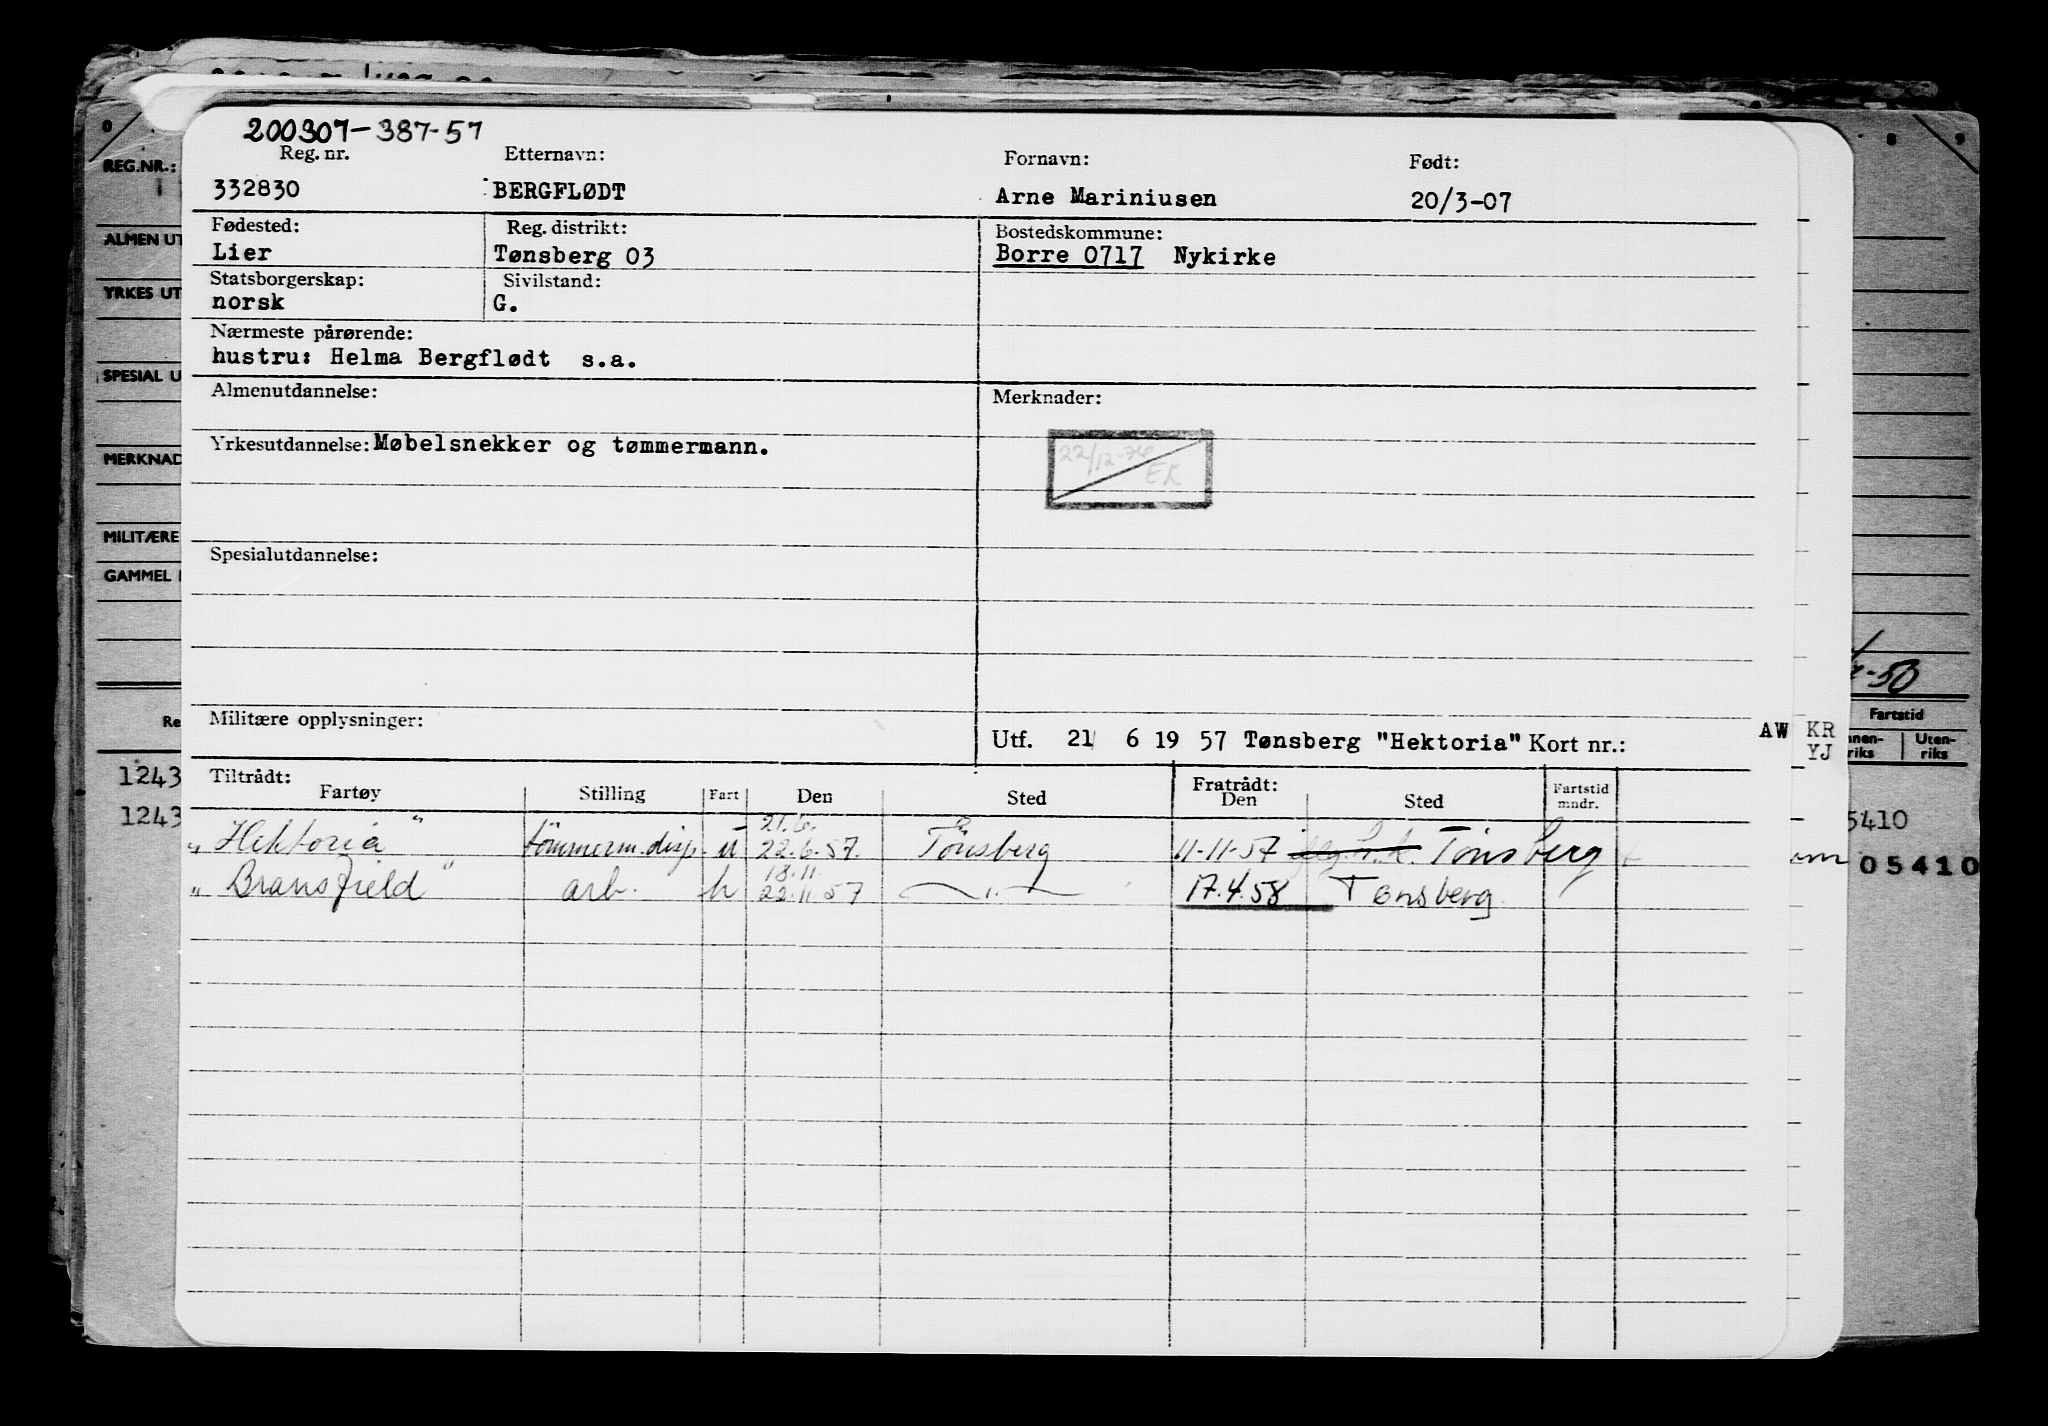 200307-387-57
Reg. nr. Etternavn: Fornavn: Født:
332830 BERGFLØDT Arne Mariniusen 20/3-07
Fødested: Reg. distrikt: Bostedskommune:
Lier Tønsberg 03 Borre 0717 Nykirke
Statsborgerskap: Sivilstand:
norsk G.
Nærmeste pårørende:
hustru: Helma Bergflødt s.a.
Almenutdannelse: Merknader:
Yrkesutdannelse: Møbelsnekker og tømmermann.
22/12-76
EK
Spesialutdannelse:
Militære opplysninger:
Utf. 21 6 19 57 Tønsberg "Hektoria" Kort nr.:
AW KR
YJ
Tiltrådt: Fratrådt:
Fartøy Stilling Fart Den Sted Den Sted Fartstid mndr.
21.6.
"Hektoria" tømmerm.disp. u 22.6.57. Tönsberg 11-11-57 Tönsberg
18.11.
"Bransfield" arb. h 22.11.57 — " — 17.4.58 Tønsberg
REG.NR.:
ALMEN UT
YRKES UT
SPESIAL U
MERKNAD
MILITÆRE
GAMMEL
Re
1243
1243
-50
Fartstid
nnen-
riks
Uten-
riks
5410
05410